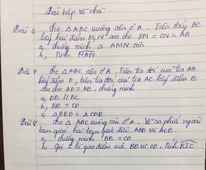 Bài tập về nhà
Bài 6: Cho ΔABC vuông cân ở A. Trên đáy BC
lấy hai điểm M, N sao cho BM = CN = AB
a, chứng minh Δ AMN cân
b, Tính MAN
Bài 7: Cho Δ ABC cân ở A, Trên tia đối của tia AB
lấy điểm D, trên tia đối của tia AC lấy điểm E
sao cho AD = AE. chứng minh
a, DE // BC
b, BE = CD
c, ΔBED = ΔCDE
Bài 8: Cho Δ ABC vuông cân ở A. Vẽ ra phía ngoài
tam giác hai tam giác đều ABD và ACE
a, chứng minh BE = CD
b, Gọi I là giao điểm của BE và CD. Tính BIC